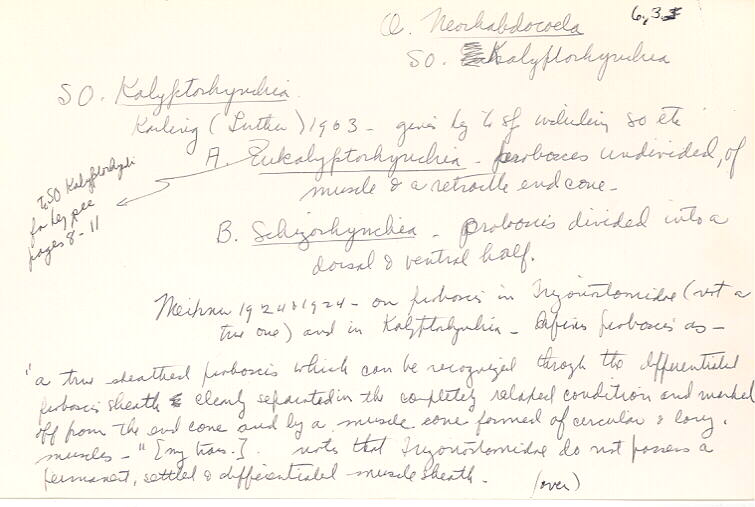 O. Neorhabdocoela
6,3.
SO. Kalyptorhynchia
SO. Kalyptorhynchia
Karling (Luther) 1963 - gives key to sf including so etc
A. Eukalyptorhynchia - proboscis undivided, of
muscle & a retractile end cone -
to SO Kalyptorhynch
for key see
pages 8-11
B. Schizorhynchia - proboscis divided into a
dorsal & ventral half.
Meixner 1924 & 1924 - on proboscis in Trigonostomidae (not a
true one) and in Kalyptorhynchia - Defines proboscis as -
"a true sheathed proboscis which can be recognized through the differentiated
proboscis sheath clearly separated in the completely relaxed condition and marked
off from the end cone and by a muscle cone formed of circular & long.
muscles -" [my trans.]. notes that Trigonostomidae do not possess a
permanent, settled & differentiated muscle sheath.
(over)